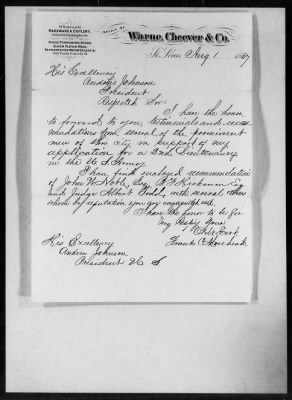 HARDWARE & CUTLERY,
OFFICE OF
Warne, Cheever & Co.
St. Louis Aug 1 1867
His Excellency
Andrew Johnson
President
Respected Sir:
I have the honor
to forward to you testimonials and recom
mendations from several of the prominent
men of this City in support of my
application for a 2nd Lieutenancy
in the U S Army
I have find enclosed recommendation
of John W. Noble, Esq
and Judge Albert Todd, with several others
which by reputation you are acquainted with.
I have the honor to be Sir
Very Resply Yours
Obt Svt
Frank
His Excellency
Andrew Johnson
President U S